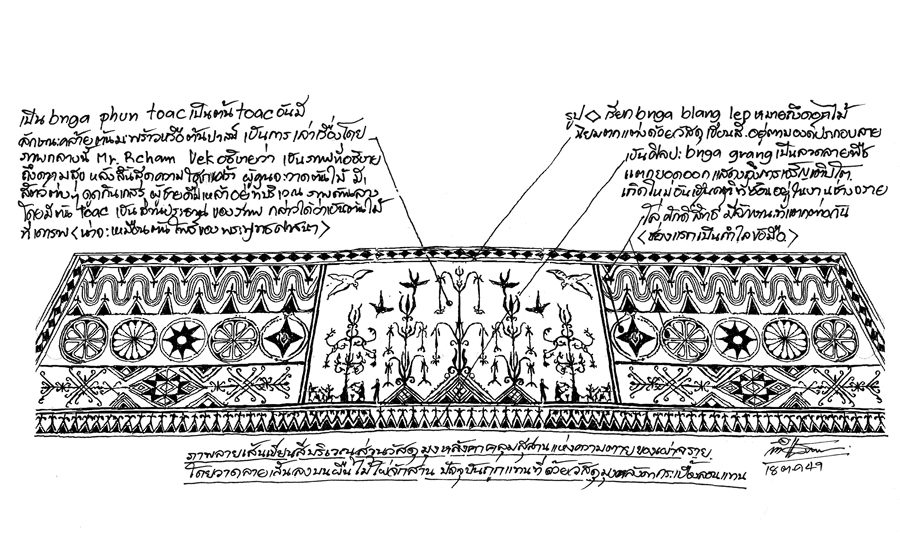 เป็น bnga phun toac เป็นต้น toac อันมี
ลักษณะคล้ายต้นมะพร้าวหรือต้นปาล์ม เป็นการเล่าเรื่องโดย
ภาพกลางนี้ Mr. Rcham Vek อธิบายว่า เป็นภาพที่อธิบาย
ถึงความสุข หลังสิ้นสุดความโศกเศร้า ผู้คนจะวาดต้นไม้ มี
สัตว์ต่างๆ ดูดกินเกสร ผู้ชายดื่มเหล้าอยู่ที่บริเวณ ภาพด้านล่าง
โดยมีต้น toac เป็น ของภาพ กล่าวได้ว่าเป็นต้นไม้
ที่เคารพ <น่าจะเหมือนต้นโพธิ์ของพระพุทธศาสนา>
รูป ◇ เรียก bnga blang lep หมายถึงดอกไม้
นิยมตกแต่งด้วยวัสดุ เขียนสี อยู่ตามองค์ประกอบลาย
เป็นศิลปะ bnga grang เป็นลวดลายพืช
แตกยอดออก แสดงถึงการเจริญเติบโต
เกิดใหม่ อันเป็น ที่ซ่อนอยู่ในงานช่างจราย
โล่ศักดิ์สิทธิ์ มีจำนวนที่แตกต่างกัน
<ช่องแรกเป็นกำไลข้อมือ>
ภาพลายเส้นเขียนสีบริเวณส่วนวัสดุมุงหลังคาคลุมสุสานแห่งความตายของเผ่าจราย
โดยวาดลายเส้นลงบนผืนไม้ไผ่จักสาน ปัจจุบันถูกแทนที่ด้วยวัสดุมุงหลังคากระเบื้องลอนแทน
18 ต.ค 49